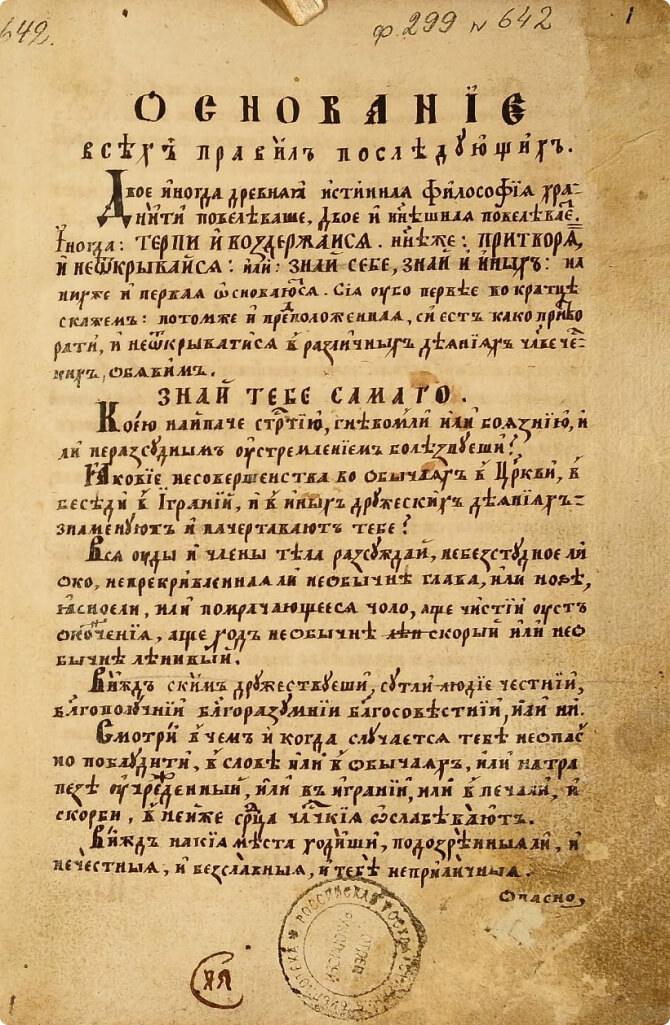 642.
ф. 299 № 642
1
ОСНОВАНЇЕ
всѣхъ правилъ послѣдующихъ.
Двое иногда древняя истинная философїя хра-
нити повелѣваше, Двое и нн҃ѣшная повелѣвае.
Иногда: ТЕРПИ И ВОЗДЕРЖАИСЯ. нн҃ѣже: ПРИТВОРЯ,
И НЕѾКРЫВАЙСЯ: или: ЗНАЙ СЕБЕ, ЗНАЙ И ИНЫХЪ: на
нихже и первая ѡсноваюся. Сїя оубо первѣе во кратцѣ
скажемъ: потомже и предположенная, си есть како притво
рати, и неѿкрыватися в различныхъ дѣянїяхъ чл҃вече
кихъ, обявимъ.
ЗНАЙ ТЕБЕ САМАГО.
Коею найпаче стр҃тїю, гнѣвомли или боязнїю, и
ли неразсуднымъ оустремленїемъ болѣзнуеши?
Ꙗковїе несовершенства во обычаяхъ в Цр҃кви, в
беседи в Їгранїй, и в иныхъ дружескихъ дѣянїяхъ
знаменуютъ и начертаваютъ тебе?
Вся оуды и члены тѣла разсуждай, небезстудное ли
око, непрекривленнаяли необычнѣ глава, или новѣ,
ꙗсноели, или помрачающееся чоло, аще чистїй оустъ
аще ход необычнѣ скорый или нео
бычнѣ лѣнивый.
Виждъ скимъ дружествуеши, сутли людїе честнїй,
бл҃гополучнїй бл҃горазумнїи бл҃госовѣстнїй, или ни.
Смотрй в чемъ и когда случается тебѣ неопас
но поблудити, в словѣ или в обычаяхъ, или на тра
пезѣ оучрежденный, или в игранїй, или в печали, и
скорби, в нейже срдца чл҃чкїя ѡслабѣваютъ.
Виждъ накїя мѣста ходиши, подозрѣнныяли, и
нечестныя, и безславныя, и тебѣ неприличныя.
Опасно,
РОССИЙСКАЯ ГОСУДАРСТВЕННАЯ БИБЛИОТЕКА